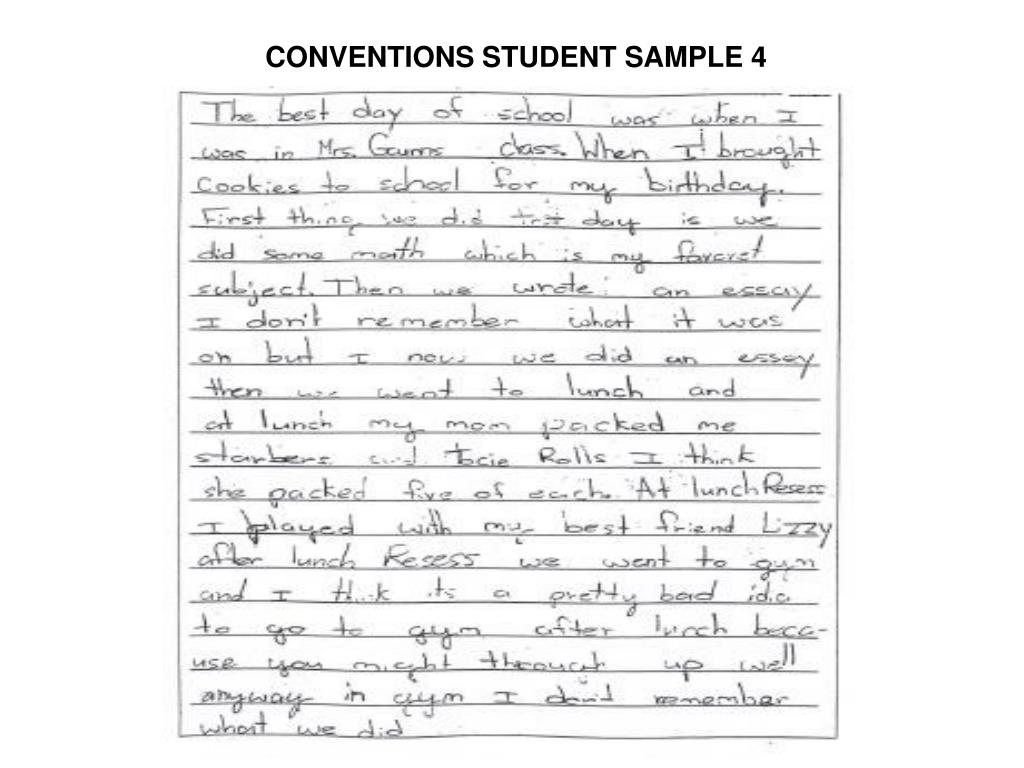 CONVENTIONS STUDENT SAMPLE 4
The best day of school was when I
was in Mrs. Gaums class. When I brought
cookies to school for my birthday.
First thing we did that day is we
did some math which is my favoret
subject. Then we wrote an essay
I don't remember what it was
on but I now we did an essay
then we went to lunch and
at lunch my mom packed me
starbers and tocie Rolls I think
she packed five of each. At lunch Resess
I played with my best friend Lizzy
after lunch Resess we went to gym
and I think its a pretty bad idia
to go to gym after lunch beca-
use you might throuch up well
anyway in gym I don't remember
what we did